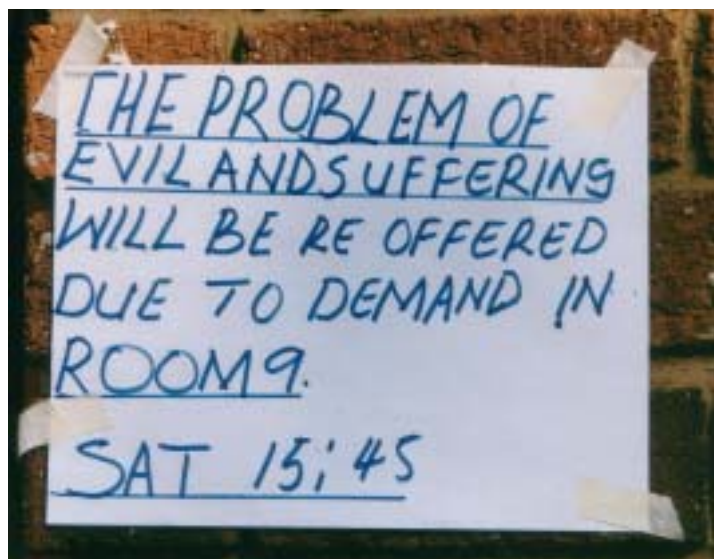 THE PROBLEM OF
EVIL AND SUFFERING
WILL BE RE OFFERED
DUE TO DEMAND IN
ROOM 9.
SAT 15:45